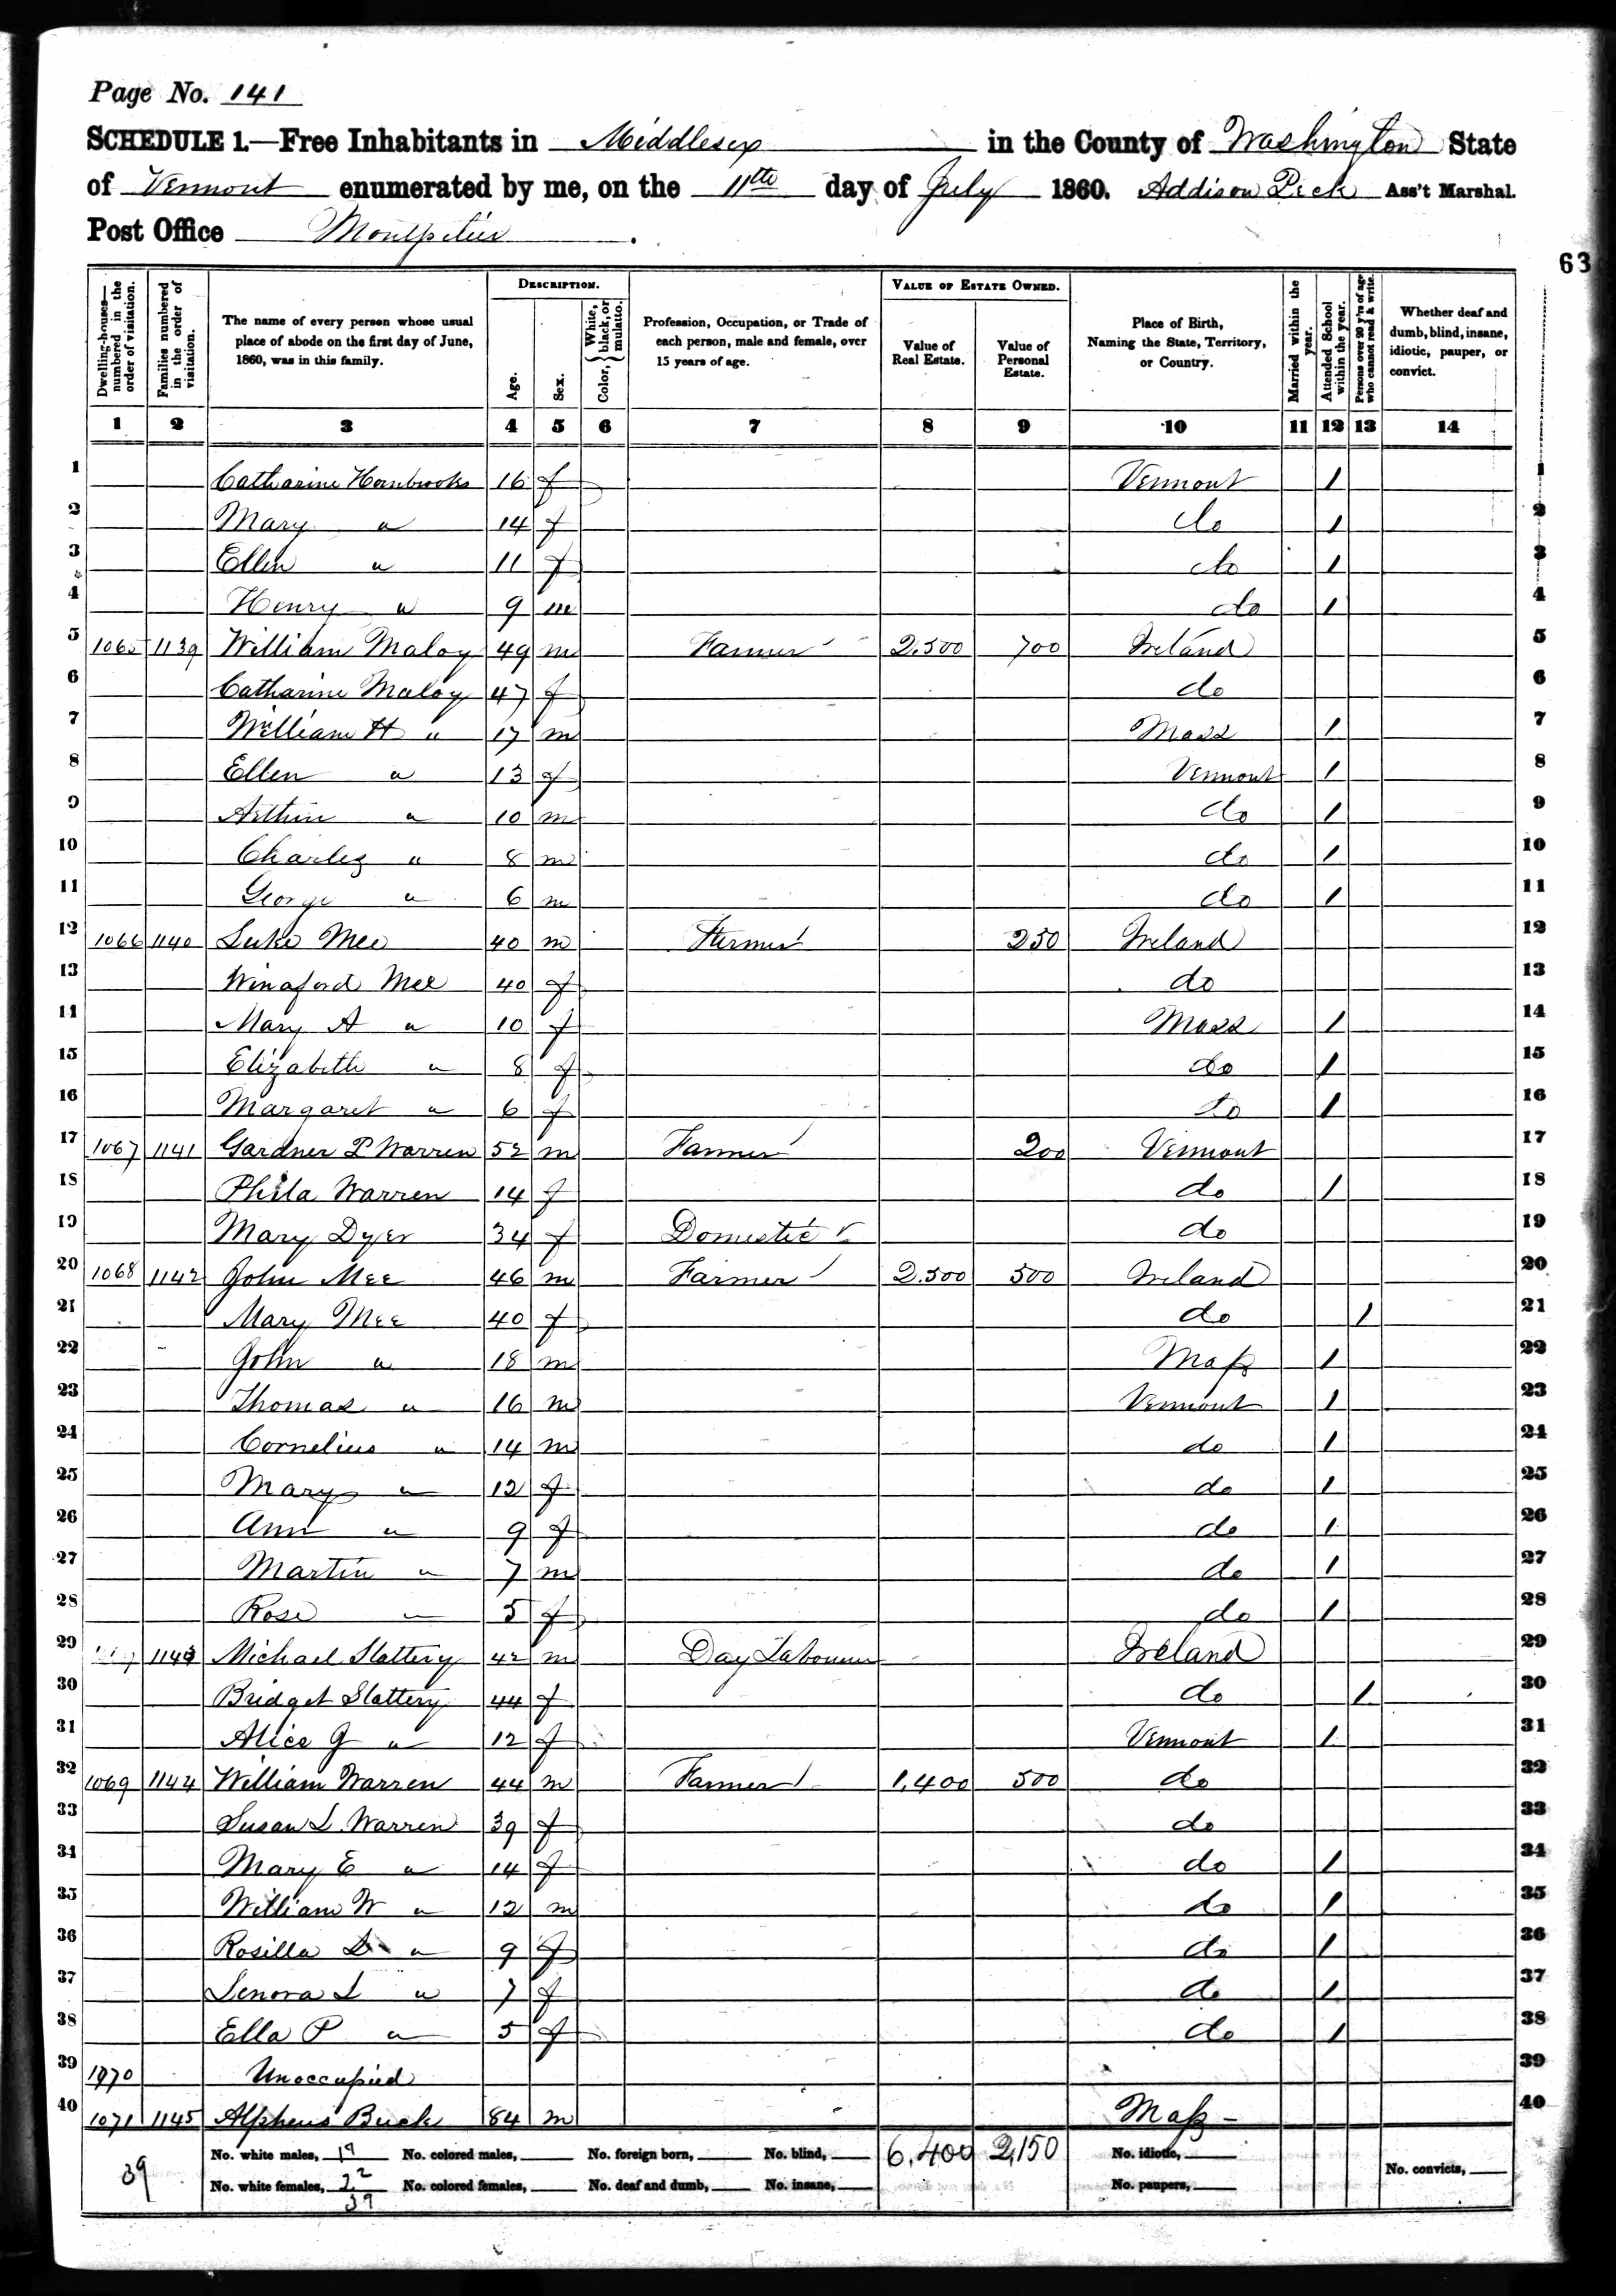 Page No. 141
SCHEDULE 1.—Free Inhabitants in Middlesex in the County of Washington State
of Vermont enumerated by me, on the 11th day of July 1860. Addison Peck Ass't Marshal.
Post Office Montpelier.
63
Dwelling-houses—numbered in the order of visitation. Families numbered in the order of visitation. The name of every person whose usual place of abode on the first day of June, 1860, was in this family. DESCRIPTION. Age. Sex. Color, {White, black, or mulatto. Profession, Occupation, or Trade of each person, male and female, over 15 years of age. VALUE OF ESTATE OWNED. Value of Real Estate. Value of Personal Estate. Place of Birth, Naming the State, Territory, or Country. Married within the year. Attended School within the year. Persons over 20 y'rs of age who cannot read & write. Whether deaf and dumb, blind, insane, idiotic, pauper, or convict.
1 2 3 4 5 6 7 8 9 10 11 12 13 14
1 Catharine Hornbrooks 16 f Vermont 1 1
2 Mary " 14 f do 1 2
3 Ellen " 11 f do 1 3
4 Henry " 9 m do 1 4
5 1065 1139 William Maloy 49 m Farmer 2.500 700 Ireland 5
6 Catharine Maloy 47 f do 6
7 William H " 17 m Mass 1 7
8 Ellen " 13 f Vermont 1 8
9 Arthur " 10 m do 1 9
10 Charles " 8 m do 1 10
11 George " 6 m do 1 11
12 1066 1140 Luke Mee 40 m Farmer 250 Ireland 12
13 Winaford Mee 40 f do 13
14 Mary A " 10 f Mass 1 14
15 Elizabeth " 8 f do 1 15
16 Margaret " 6 f do 1 16
17 1067 1141 Gardner P Warren 52 m Farmer 200 Vermont 17
18 Phila Warren 14 f do 1 18
19 Mary Dyer 34 f Domestic do 19
20 1068 1142 John Mee 46 m Farmer 2.500 500 Ireland 20
21 Mary Mee 40 f do 1 21
22 John " 18 m Mass 1 22
23 Thomas " 16 m Vermont 1 23
24 Cornelius " 14 m do 1 24
25 Mary " 12 f do 1 25
26 Ann " 9 f do 1 26
27 Martin " 7 m do 1 27
28 Rose " 5 f do 1 28
29 1143 Michael Slattery 42 m Day Labourer Ireland 29
30 Bridget Slattery 44 f do 1 30
31 Alice G " 12 f Vermont 1 31
32 1069 1144 William Warren 44 m Farmer 1,400 500 do 32
33 Susan L. Warren 39 f do 33
34 Mary E " 14 f do 1 34
35 William W " 12 m do 1 35
36 Rosilla D " 9 f do 1 36
37 Lenora L " 7 f do 1 37
38 Ella P " 5 f do 1 38
39 1070 Unoccupied 39
40 1071 1145 Alpheus Buck 84 m Mass 40
39 No. white males, 17 No. colored males, No. foreign born, No. blind, 6,400 2,150 No. idiotic,
No. white females, 22 No. colored females, No. deaf and dumb, No. insane, No. paupers, No. convicts,
39